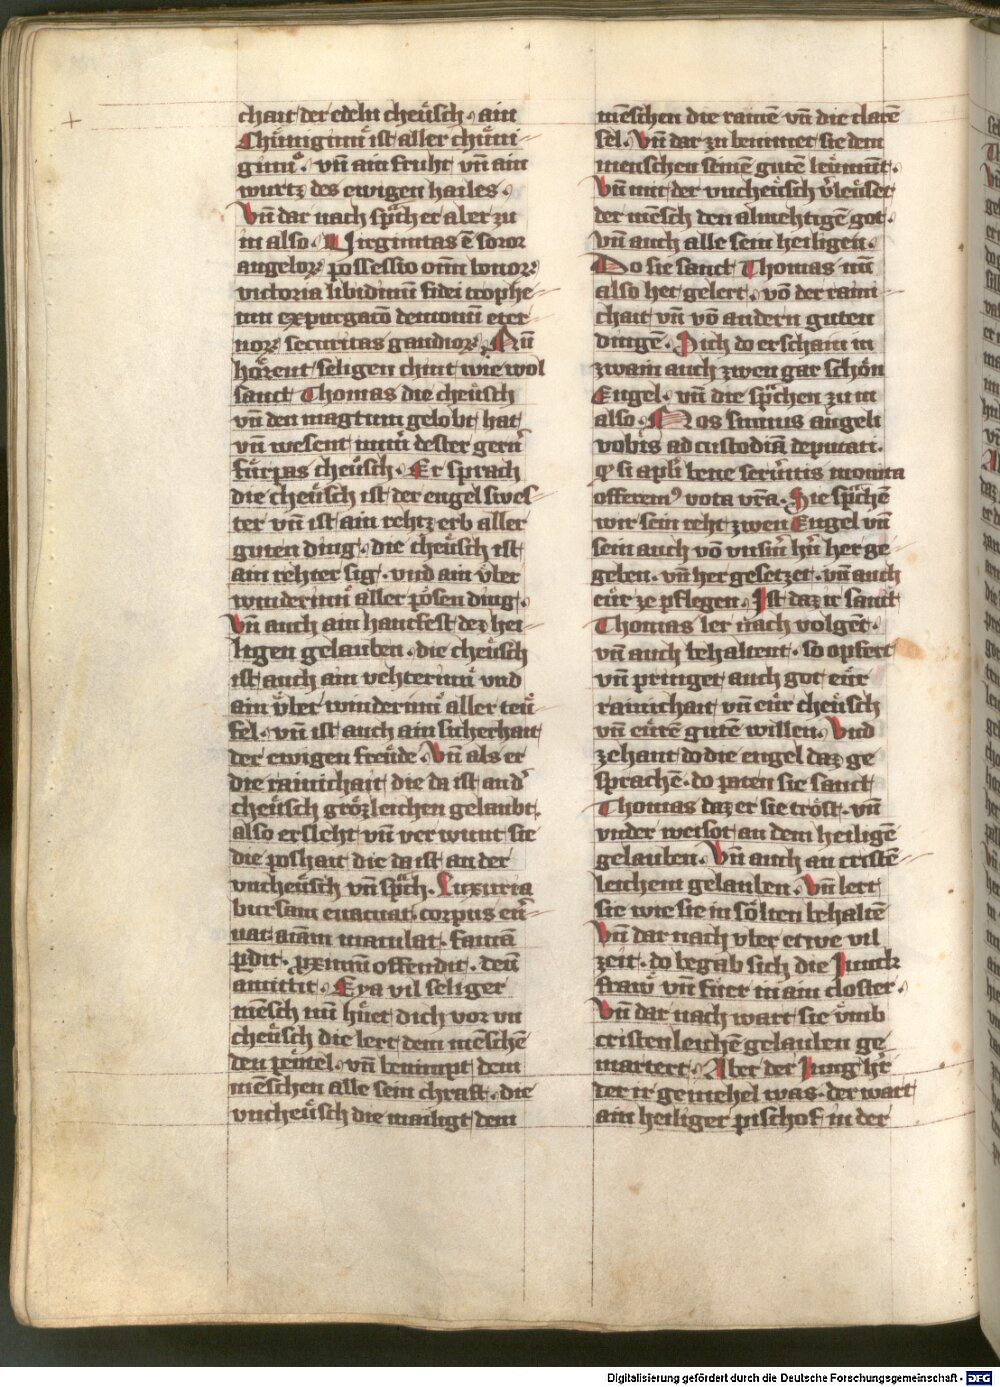 chait der edeln cheüsch · ain
Chünigiñ ist aller chüni-
giñ · vn̄ ain fruht vn̄ ain
wurtz des ewigen hailes ·
Vn̄ dar nach sp̄ch er aber zu
in also · Virginitas ē soror
angeloꝝ possessio om̄ bonoꝝ
victoria libidinū fidei trophe-
um expurgac̄o demonū eter
noꝝ securitas gaudioꝝ · Nū
hörent seligen chint wie wol
sanct Thomas die cheüsch
vn̄ den magtum gelobt hat
vn̄ wesent nun dester gern̄
fürpas cheüsch · Er sprach
die cheüsch ist der engel swes-
ter vn̄ ist ain rehtz erb aller
guten ding · die cheüsch ist
ain rehter sig · vnd ain v̈ber
winderinn aller pösen ding ·
Vn̄ auch ain hantfest dez hei-
ligen gelauben · die cheüsch
ist auch ain vehterinn vnd
ain v̈ber winderinn aller teü
fel · vn̄ ist auch ain sicherhait
der ewigen freüde · Vn̄ als er
die rainichait die da ist an d̄
cheüsch grözleichen gelaubt ·
also ersleht vn̄ verwunt sie
die poshait die da ist an der
vncheüsch vn̄ sp̄ch · Luxuria
bursam euacuat · corpus en̄-
uat · aīam maculat · famā
ꝑdit · ꝓximū offendit · deū
amittit · Eya vil seliger
mēsch nū hüet dich vor vn
cheüsch die lert dem mēschē
den peütel · vn̄ benimpt dem
mēschen alle sein chraft · die
vncheüsch die mailigt dem
mēschen die rainē vn̄ die clarē
sel · Vn̄ dar zu benimet sie dem
menschen seinem gutē leümūt ·
Vn̄ mit der vncheüsch v̄leüset
der mēsch den almehtigē got ·
vn̄ auch alle sein heiligen ·
Do sie sanct Thomas nun
also het gelert · vō der raini
chait vn̄ vō andern guten
dingē · Sich do erschain in
zwain auch zwen gar schön
Engel · vn̄ die sp̄chen zu in
also · Nos sumus angeli
vobis ad custodiā deputati ·
ꝙ si apl̄i bene seruatis monita
offerem⁹ vota vr̄a · Sie sp̄chē
wir sein reht zwen Engel vn̄
sein auch vō vnsm̄ hn̄ her ge-
geben · vn̄ her gesetzet · vn̄ auch
eür ze pflegen · Ist daz ir sanct
Thomas ler nach volgēt ·
vn̄ auch behaltent · so opfert
vn̄ pringet auch got eür
rainichait vn̄ eür cheüsch
vn̄ eürē gutē willen · Vnd
zehant do die engel daz ge
sprachē · do paten sie sanct
Thomas daz er sie tröst · vn̄
vnder weisot an dem heiligē
gelauben · Vn̄ auch an cristē-
leichem gelauben · Vn̄ lert
sie wie sie in sölten behaltē
Vn̄ dar nach vber etwe vil
zeit · do begab sich die Junck
fraw vn̄ fuer in ain closter ·
Vn̄ dar nach wart sie v̈mb
cristenleichē gelauben ge
martert · Aber der Jung hr̄
der ir gemehel was · der wart
ain heiliger pischof in der
Digitalisierung gefördert durch die Deutsche Forschungsgemeinschaft - DFG